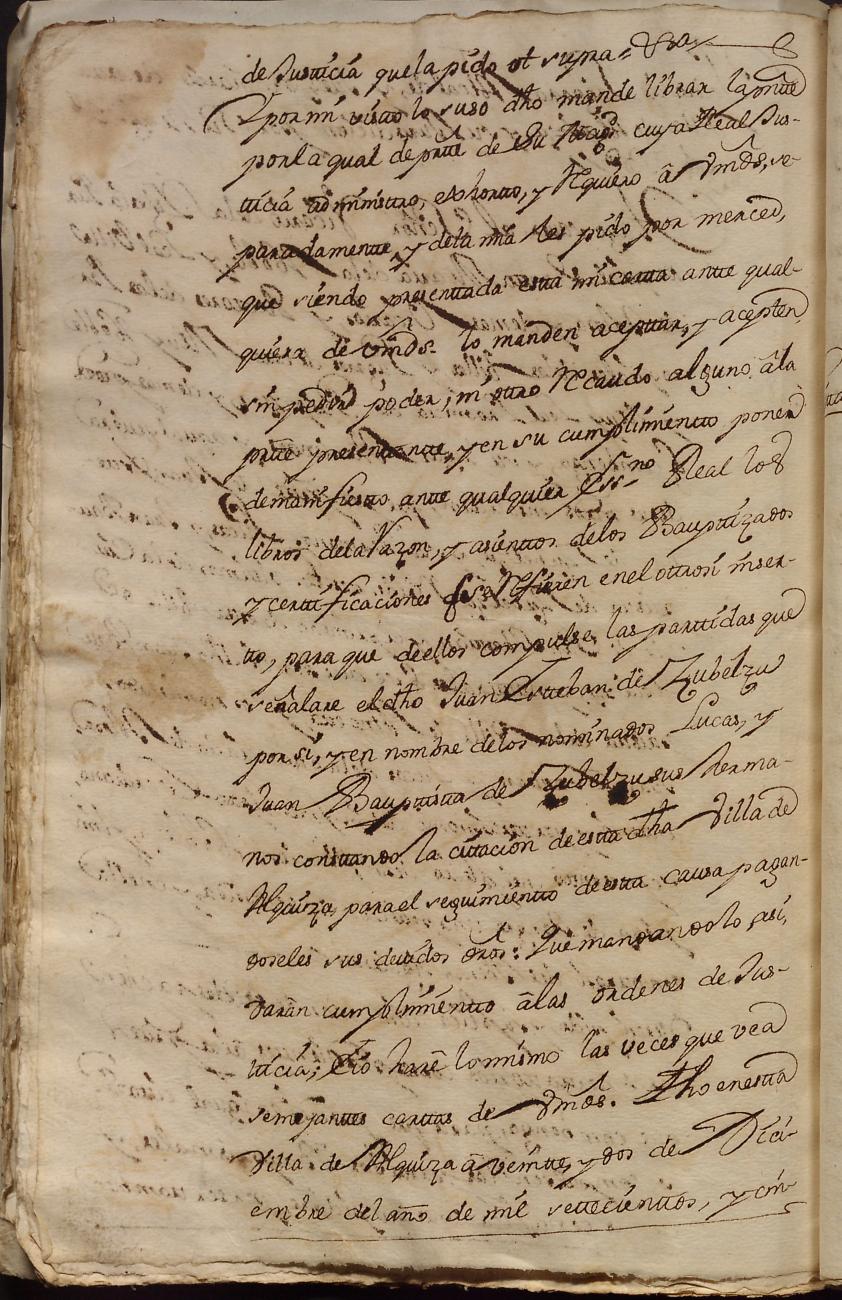 de Justticia que la pido ut supra =
Y por mi visto lo suso dho mande librar la pntte
por la qual de partte de Su Magd cuya Real Jus-
ticia administtro, exhortto, y Requiero â Vmds, se-
paradamentte, y de la mia les pido por merced,
que siendo presenttada estta mi cartta antte qual-
quiera de Vmds. lo manden aceptar, y acepten
sin pedir poder, ni ottro Recaudo alguno â la
partte presenttantte, y en su cumplimientto poner
de manifiestto, antte qualquier Essno Real los
libros de la Razon, y asienttos de los Bauptizados
y certtificaciones qe se Refieren en el ottrosi inser-
tto, para que de ellos compulse, las parttidas que
señalare el dho Juan Estteban de Zubelzu
por si, y en nombre de los nominados Lucas, y
Juan Bauptistta de Zubelzu sus herma-
nos consttando la cittacion de estta dha Villa de
Alquiza, para el seguimientto de estta causa pagan-
doseles sus devidos dros: Que mandandolo asi,
daràn cumplimientto âlas ordenes de Jus-
tticia; Eió harè lo mismo las veces que vea
semejanttes carttas de Vmds. Fho en estta
Villa de Alquiza â veintte, y dos de Dici-
embre del año de mil settecienttos, y cin-